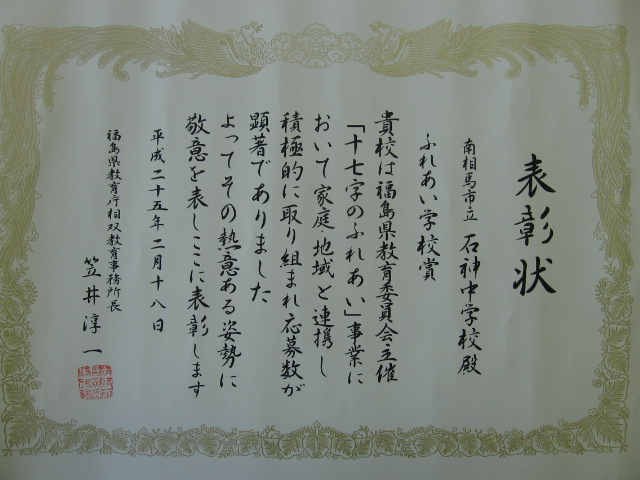 表彰状
南相馬市立 石神中学校殿
ふれあい学校賞
貴校は福島県教育委員会主催
「十七字のふれあい」事業に
おいて家庭・地域と連携し
積極的に取り組まれ応募数が
顕著でありました
よってその熱意ある姿勢に
敬意を表しここに表彰します
平成二十五年二月十八日
福島県教育庁相双教育事務所長
笠井淳一